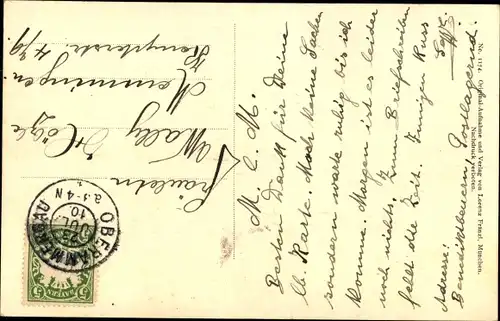 M. l. M.
Besten Dank für Deine
lb. Karte. Mach keine Sachen
sondern warte ruhig bis ich
komme. Morgen ist es leider
noch nichts. Zum Briefschreiben
fehlt die Zeit. Innigen Kuss
Adresse:
Benediktbeuern, Postlagernd.
Nr. 1174. Original-Aufnahme und Verlag von Lorenz Fränzl, München.
Nachdruck verboten.
Fräulein
Wally
Memmingen.
Kempterstr.
OBERAMMERGAU
JUL.
10
3-4 N
5 BAYERN 5